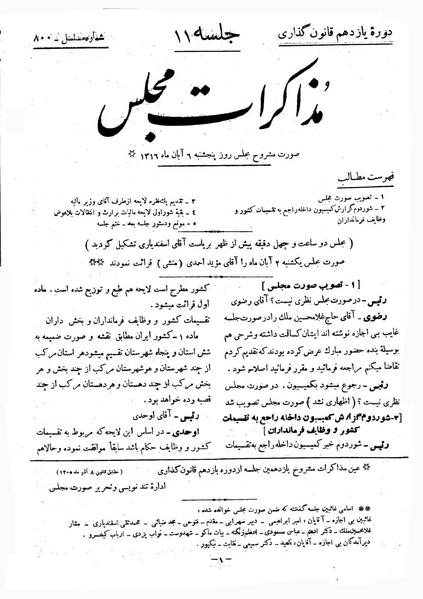 دورهٔ یازدهم قانون گذاری
جلسه ۱۱
شماره مسلسل - ۸۰۰
مذاکرات مجلس
صورت مشروح مجلس روز پنجشنبه ۶ آبان ماه ۱۳۱۶ ☆
فهرست مطالب
۱ - تصویب صورت مجلس
۲ - شور دوم گزارش کمیسیون داخله راجع به تقسیمات کشور و
وظایف فرمانداران
۳ - تقدیم یکفقره لایحه از طرف آقای وزیر مالیه
۴ - بقیه شور اول لایحه مالیات بر ارث و انتقالات بلاعوض
۵ - موقع و دستور جلسه بعد - ختم جلسه
( مجلس دو ساعت و چهل دقیقه پیش از ظهر بریاست آقای اسفندیاری تشکیل گردید )
صورت مجلس یکشنبه ۲ آبان ماه را آقای مؤید احمدی (منشی) قرائت نمودند ☆☆
[ ۱- تصویب صورت مجلس ]
رئیس - در صورت مجلس نظری نیست؟ آقای رضوی
رضوی - آقای حاج غلامحسین ملک را در صورت جلسه
غایب بی اجازه نوشته اند ایشان کسالت داشته و شرحی هم
بوسیله بنده حضور مبارک عرض کرده بودند که تقدیم کردم
تقاضا میکنم مراجعه فرمائید و مقرر فرمائید اصلاح شود.
رئیس - رجوع میشود بکمیسیون. در صورت مجلس
نظری نیست؟ (اظهاری نشد) صورت مجلس تصویب شد
[۲- شور دوم گزارش کمیسیون داخله راجع به تقسیمات
کشور و وظایف فرمانداران]
رئیس - شور دوم خبر کمیسیون داخله راجع به تقسیمات
کشور مطرح است لایحه هم طبع و توزیع شده است. ماده
اول قرائت میشود.
تقسیمات کشور و وظایف فرمانداران و بخش داران
ماده ۱ - کشور ایران مطابق نقشه و صورت ضمیمه به
شش استان و پنجاه شهرستان تقسیم میشود هر استان مرکب
از چند شهرستان و هر شهرستان مرکب از چند بخش و هر
بخش مرکب از چند دهستان و هر دهستان مرکب از چند
قصبه و ده خواهد بود.
رئیس - آقای اوحدی
اوحدی - در اساس این لایحه که مربوط به تقسیمات
کشور و وظایف حکام باشد سابقاً موافقت نموده و حالا هم
☆ عین مذاکرات مشروح یازدهمین جلسه از دوره یازدهم قانون گذاری (مطابق قانون ۸ آذر ماه ۱۳۰۵)
اداره تند نویسی و تحریر صورت مجلس
☆☆ اسامی غائبین جلسه گذشته که ضمن صورت مجلس خوانده شده:
غائبین بی اجازه - آقایان: امیر ابراهیمی - دبیر سهرابی - مقدم - فتوحی - مجد ضیائی - محمد تقی اسفندیاری - مشار
دیر آمدگان بی اجازه - آقایان: - دکتر سمیعی - نقابت - نیکپور.
- ۱ -